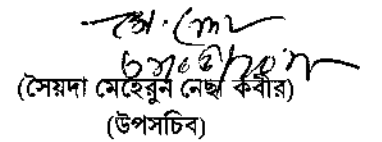 (সৈয়দা মেহেরুন নেছা কবীর)
(উপসচিব)